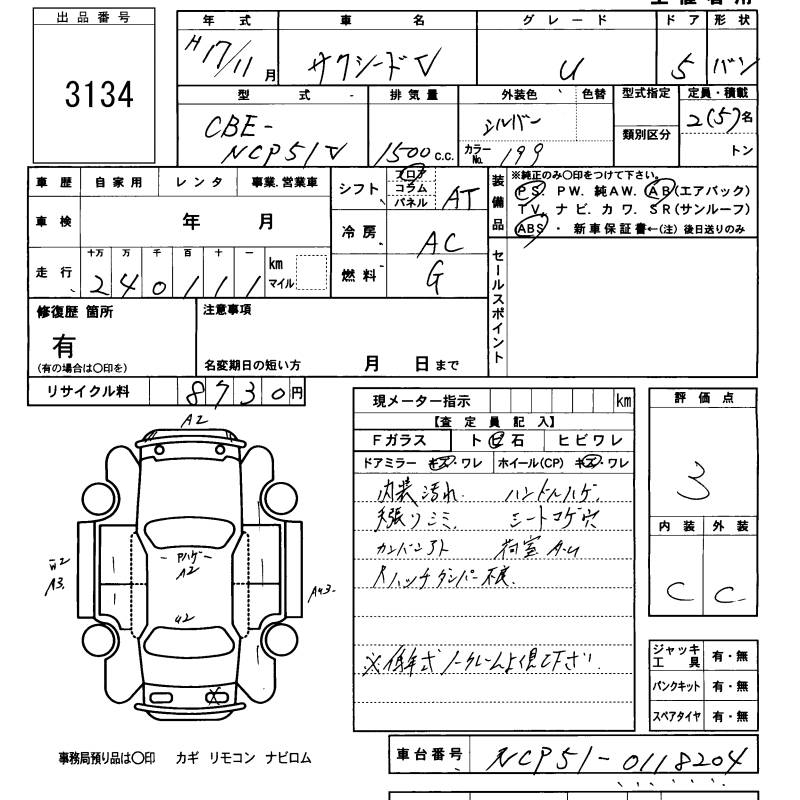 出品番号
3134
年式 車名 グレード ドア 形状
H17/11月 サクシードV U 5 バン
型式 排気量 外装色 色替 型式指定 定員・積載
CBE-
NCP51V 1500c.c. シルバー 2(5)名
カラーNo. 199 類別区分 トン
車歴 自家用 レンタ 事業.営業車
シフト フロア コラム パネル AT
装備品
※純正のみ〇印をつけて下さい。
PS. PW. 純AW. AB(エアバック)
TV. ナビ. カワ. SR(サンルーフ)
ABS ・ 新車保証書←(注) 後日送りのみ
車検 年 月
冷房 AC
走行 十万 万 千 百 十 一
240111 km マイル
燃料 G
セールスポイント
修復歴 箇所
有
(有の場合は〇印を)
注意事項
名変期日の短い方 月 日まで
リサイクル料 8730円
現メーター指示 km
【査定員記入】
Fガラス ト ビ 石 ヒビワレ
ドアミラー キズ・ワレ ホイール(CP) キズ・ワレ
内装汚れ. ハンドルハゲ.
天張リシミ. シートコゲ穴
カンバンアト 荷室 A.U
Rハッチダンパー不良.
※低年式ノークレーム
評価点
3
内装 外装
C C
A2
A3.
Pハゲ
A2
U2
ジャッキ工具 有・無
パンクキット 有・無
スペアタイヤ 有・無
事務局預り品は〇印 カギ リモコン ナビロム
車台番号 NCP51-0118204